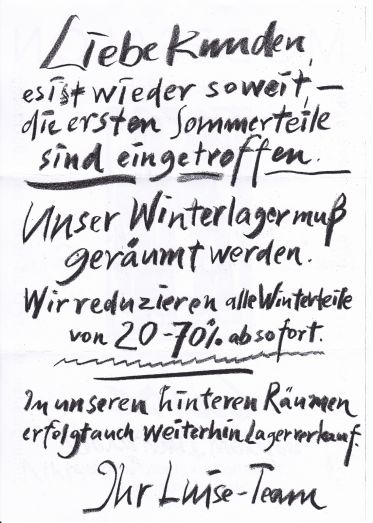 Liebe Kunden,
es ist wieder soweit, –
die ersten Sommerteile
sind eingetroffen.
Unser Winterlager muß
geräumt werden.
Wir reduzieren alle Winterteile
von 20-70% ab sofort.
In unseren hinteren Räumen
erfolgt auch weiterhin Lagerverkauf.
Ihr Luise-Team